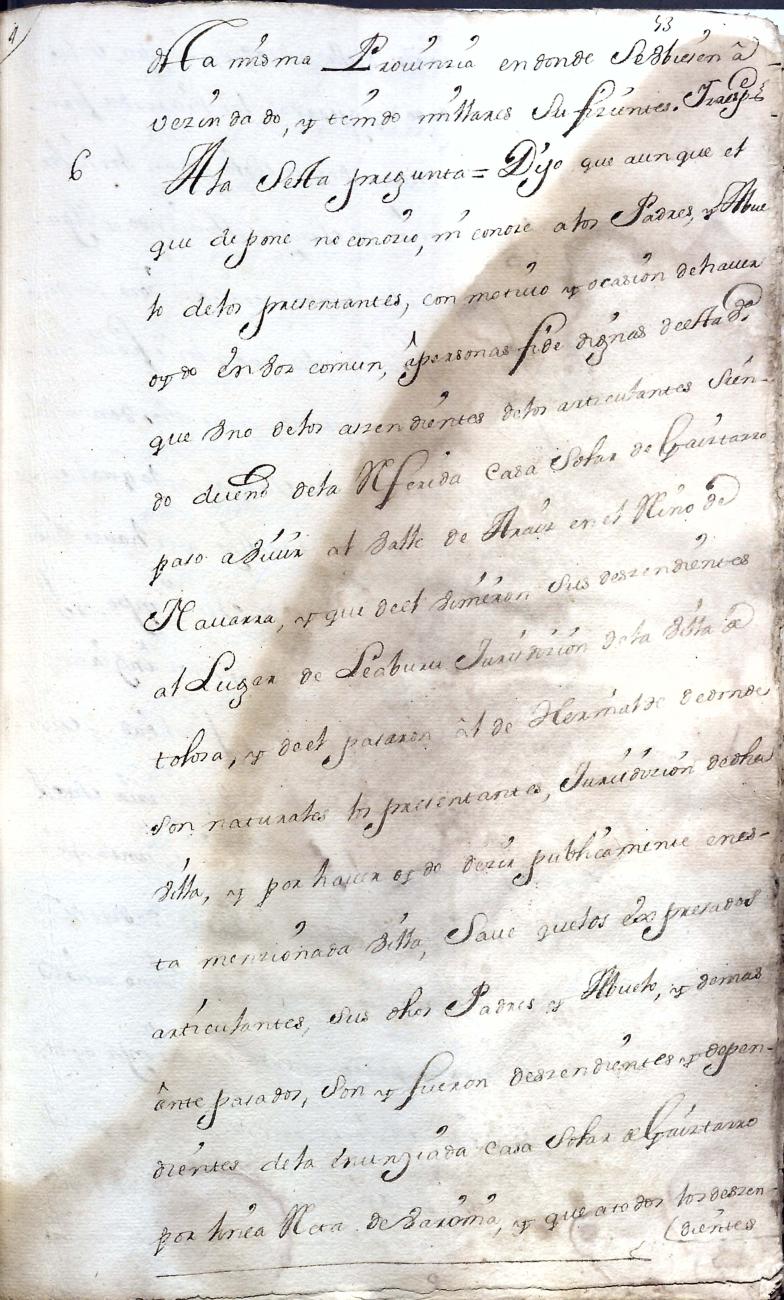 53
dela misma Provinzia en donde Sedbiesen â
vezindado, y tenido millares Sufizientes. Y respde
6 Ala Sesta pregunta = Dijo que aunque el
que depone no conozio, ni conoze alos Padres, y Abue
lo delos presentantes, con motivo y ocasion de haver
oydo en Vos comun, â personas fide dignas de esta Va
que Vno delos aszendientes delos articulantes Sien-
do dueño dela Referida Casa Solar de Gaintarro
paso a Viuir al Valle de Araiz en el Reino de
Nauarra, y que de el Vinieron Sus deszendientes
al Lugar de Leaburu Jurisdizion dela Villa de
tolosa, y de el pasaron âl de Hernialde de donde
son naturales los presentantes, Jurisdizion de dha
Villa, y por hauer oydo dezir publicamente en es-
ta menzionada Villa, Saue quelos expresados
articulantes, sus dhos Padres y Abuelo, y demas
ânte pasados, Son y fueron deszendientes y depen-
dientes dela enunziada casa Solar de Gaintarro
por linea Reta de Varonia, y que atodos los deszen-
(dientes